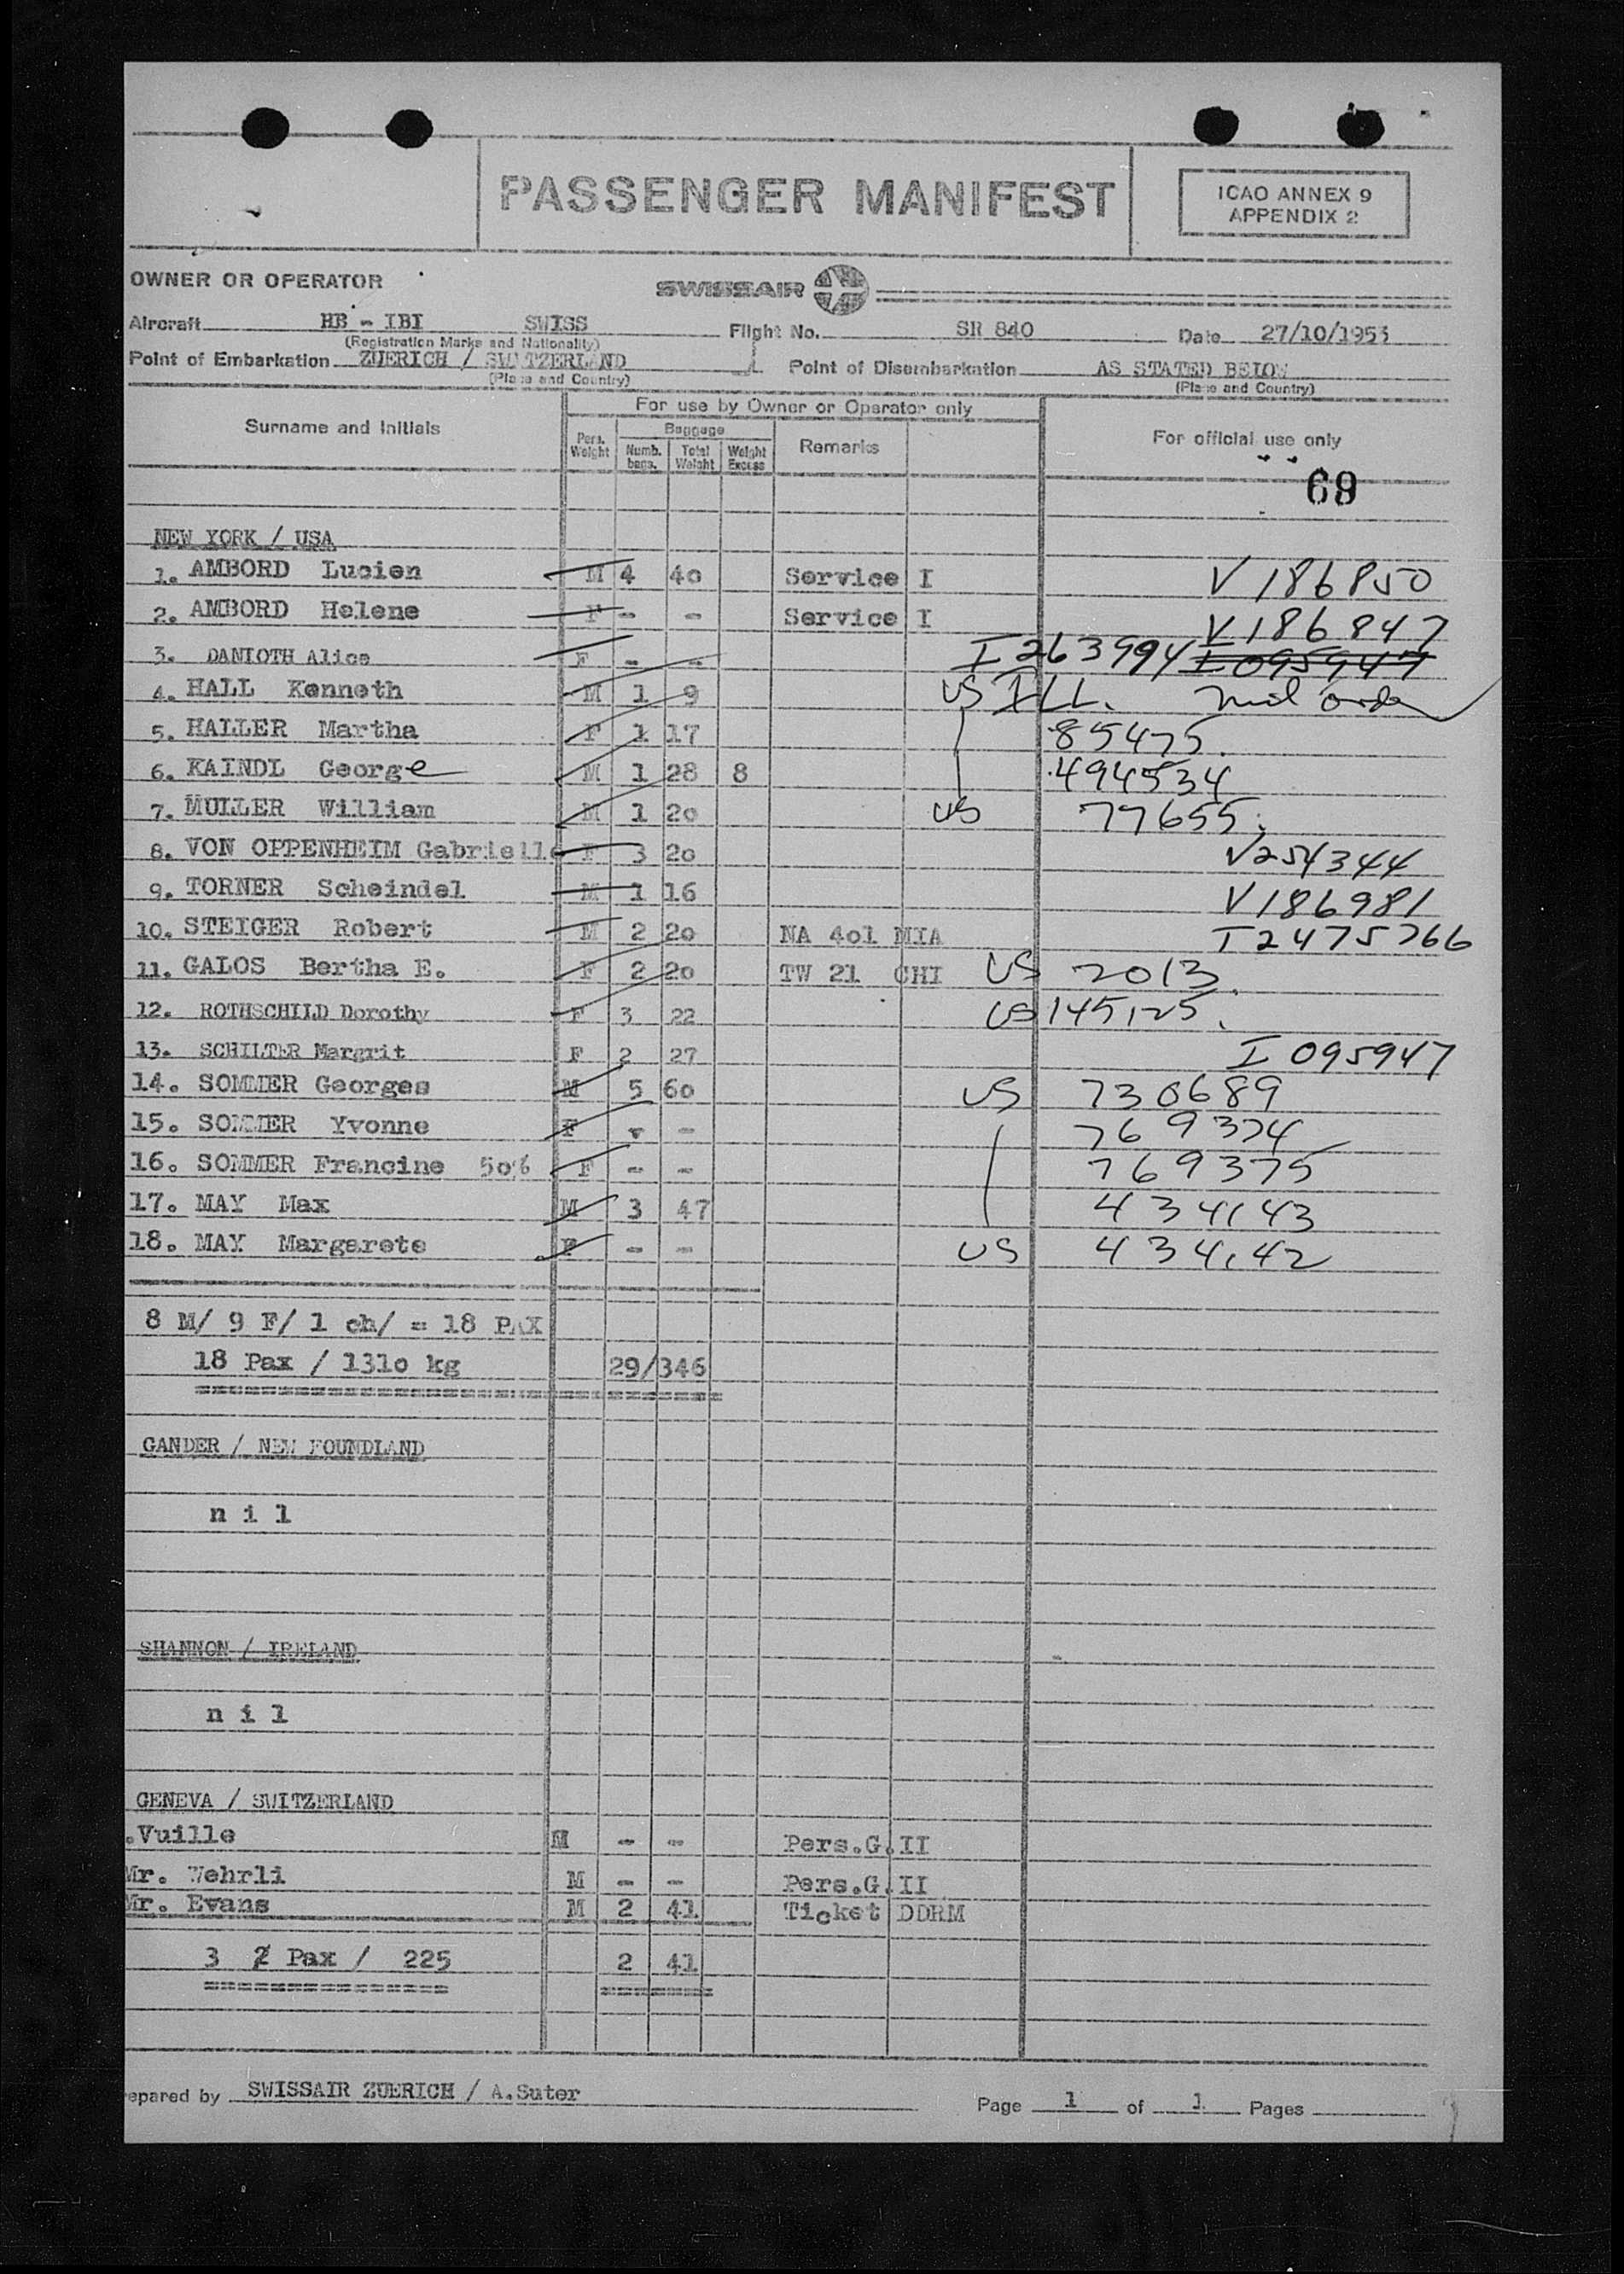 PASSENGER MANIFEST
ICAO ANNEX 9
APPENDIX 2
OWNER OR OPERATOR
SWISSAIR
Aircraft HB - IBI SWISS Flight No. SR 840 Date 27/10/1953
(Registration Marks and Nationality)
Point of Embarkation ZUERICH / SWITZERLAND Point of Disembarkation AS STATED BELOW
(Place and Country) (Place and Country)
Surname and Initials For use by Owner or Operator only For official use only
Pers. Weight Baggage Numb. bags. Total Weight Weight Excess Remarks
69
NEW YORK / USA
1. AMBORD Lucien M 4 40 Service I V 186850
2. AMBORD Helene F - - Service I V 186847
3. DANIOTH Alice F - - I 263994 I 095947
4. HALL Kenneth M 1 9 US ILL.
5. HALLER Martha F 1 17 85475.
6. KAINDL George M 1 28 8 494534
7. MULLER William M 1 20 US 77655
8. VON OPPENHEIM Gabrielle F 3 20 V254344
9. TORNER Scheindel M 1 16 V186981
10. STEIGER Robert M 2 20 NA 401 MIA I2475766
11. GALOS Bertha E. F 2 20 TW 21 CHI US 2013
12. ROTHSCHILD Dorothy F 3 22 US 145125
13. SCHILTER Margrit F 2 27 I 095947
14. SOMMER Georges M 5 60 US 730689
15. SOMMER Yvonne F - - 769374
16. SOMMER Francine 50% F - - 769375
17. MAY Max M 3 47 434143
18. MAY Margarete F - - US 434142
8 M/ 9 F/ 1 ch/ = 18 PAX
18 Pax / 1310 kg 29/346
GANDER / NEW FOUNDLAND
n i l
SHANNON / IRELAND
n i l
GENEVA / SWITZERLAND
.Vuille M - - Pers.G.II
Mr. Wehrli M - - Pers.G.II
Mr. Evans M 2 41 Ticket DDRM
3 2 Pax / 225 2 41
epared by SWISSAIR ZUERICH / A.Suter Page 1 of 1 Pages